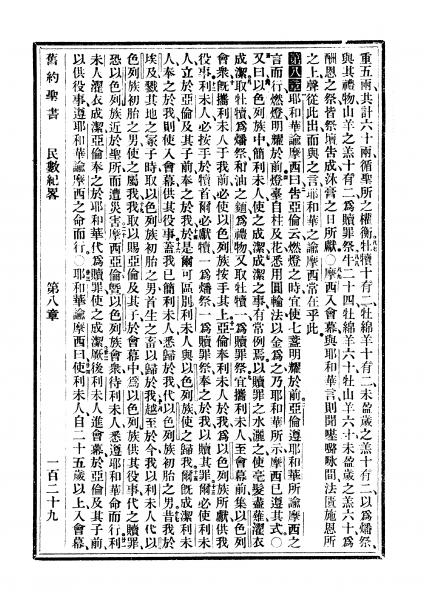 重五兩共計六十兩循聖所之權衡牡犢十有二牡綿羊十有二未盈歲之羔十有二以爲燔祭、
與其禮物山羊之羔十有二爲贖罪祭牛二十四牡綿羊六十牡山羊六十未盈歲之羔六十爲
酬恩之祭皆祭壇告成沐膏之日所獻○摩西入會幕與耶和華言則聞咏間法匱施恩所
之上聲從此出而與之言耶和華之諭摩西常在乎此。
第八章 耶和華諭摩西曰告亞倫云燃燈之時宜使七盞明耀於前亞倫遵耶和華所諭摩西之
言而行燃燈明耀於前燈臺自柱及花悉用圓輪法以金爲之乃耶和華所示摩西已遵其式○
又曰以色列族中簡利未人使之成潔成潔之事有常例焉以贖罪之水灑之使毫髮盡薙濯衣
成潔取牡犢爲燔祭和油之麵爲禮物又取牡犢一爲贖罪祭宜攜利未人至會幕前集以色列
會衆旣攜利未人於我前必使以色列族按手其上亞倫奉利未人於我爲以色列族所獻供我
役事利未人必按手於犢首爾必獻犢一爲燔祭一爲贖罪祭奉之於我以贖其罪爾必使利未
人立於亞倫及其子前奉之於我於是爾可區別利未人與以色列族使之歸我爾旣成潔利未
人奉之於我則使入會幕供其役事蓋我已簡利未人悉歸於我代以色列族初胎之男昔我於
埃及戮其地之冢子時取以色列族初胎之男首生之畜以歸於我越至於今我以利未人代以
色列族初胎之男使之屬我我取以賜亞倫及其子於會幕中爲以色列族供其役事代之贖罪
恐以色列族近於聖所而遭災害摩西亞倫曁以色列族會衆待利未人悉遵耶和華命而行利
未人濯衣成潔亞倫奉之於耶和華代爲贖罪使之成潔厥後利未人進會幕於亞倫及其子前、
以供役事遵耶和華諭摩西之命而行○耶和華諭摩西曰使利未人自二十五歲以上入會幕、
舊約聖書 民數紀畧 第八章 一百二十九